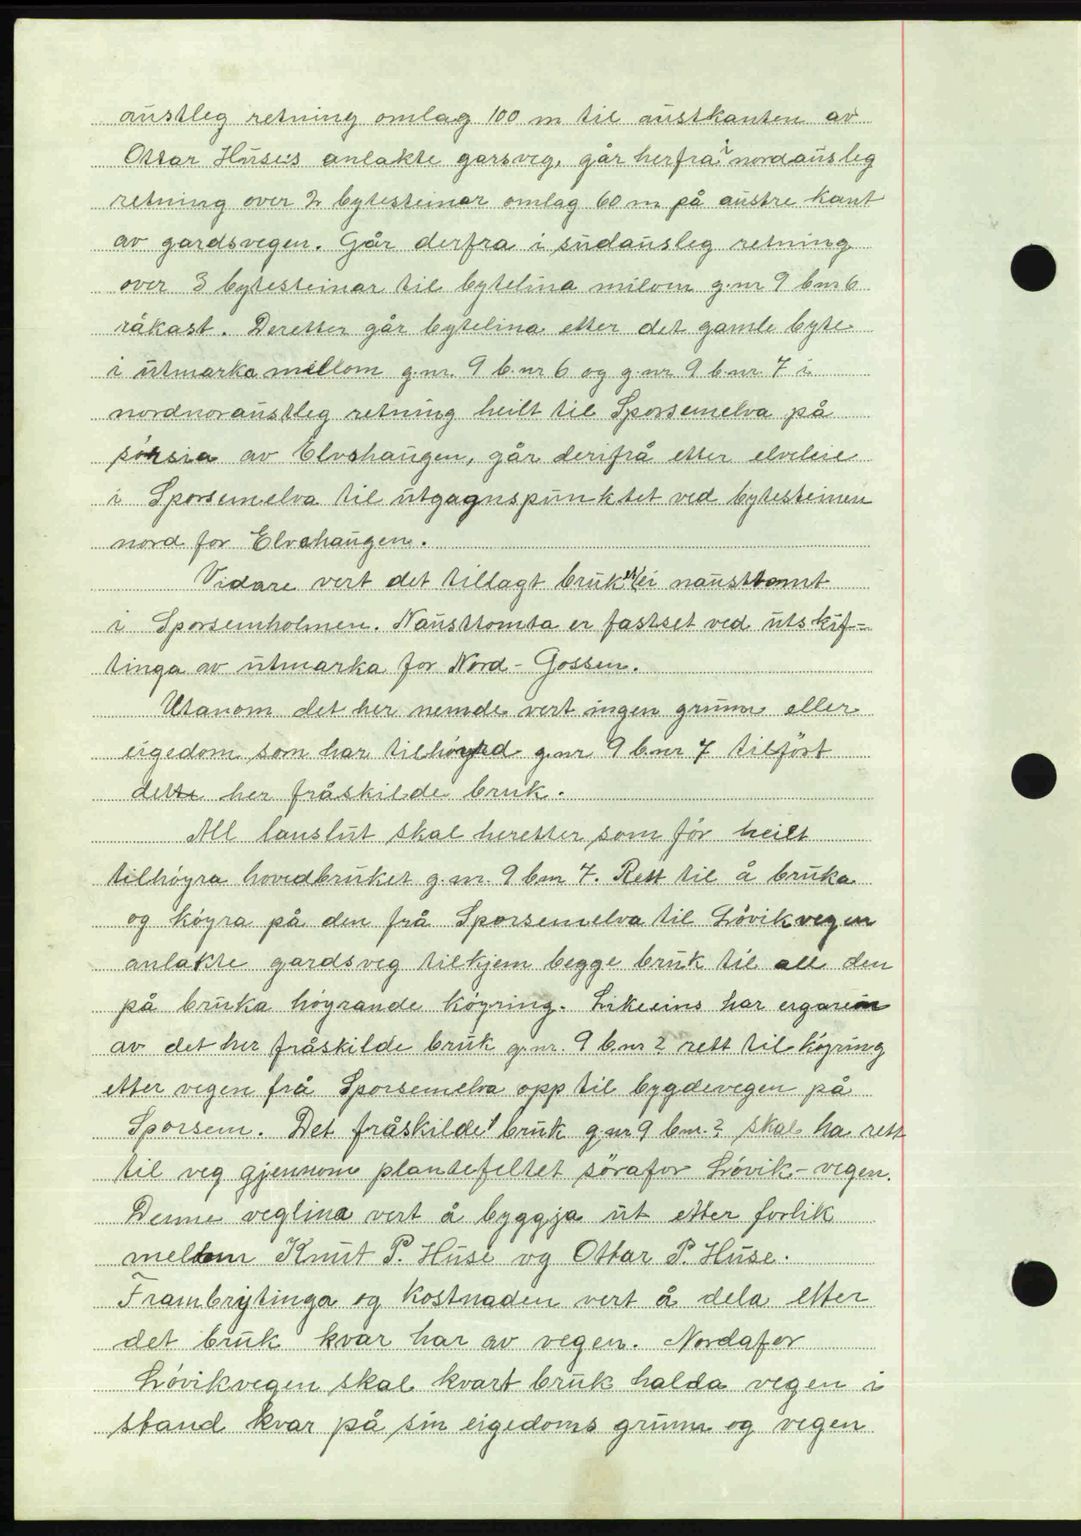 austleg retning omlag 100 m til austkanten av
Ottar Huse's anlakte garsveg, går herfra i nordausleg
retning over 2 bytesteinar omlag 60 m på austre kant
av gardsvegen. Går derfra i sudausleg retning
over 3 bytesteinar til bytelina milom g.nr 9 b.nr 6
råkast. Deretter går bytelina etter det gamle byte
i utmarka millom g.nr. 9 b.nr 6 og g.nr 9 b.nr. 7 i
nordnoraustleg retning heilt til Sporsemelva på
sórsia av Elvshaugen, går derifrå etter elveleie
i Sporsemelva til utgagnspunktet ved bytesteinen
nord for Elvehaugen.
Vidare vert det tillagt bruket ei nausttomt
i Sporsemholmen. Nausttomta er fastset ved utskif-
tinga av utmarka for Nord-Gossen.
Utanom det her nemde vert ingen grunn eller
eigedom som har tilhóyrd g.nr 9 b.nr 7 tilfört
dette her fråskilde bruk.
All lauslut skal heretter som fór heilt
tilhóyra hovedbruket g.nr. 9 b.nr 7. Rett til å bruka
og kóyra på den frå Sporsemelva til Lóvikvegen
anlakte gardsveg tilkjem begge bruk til all den
på bruka hóyrande kóyring. Likeeins har ergaren
av det her fråskilde bruk g.nr. 9 b.nr ? rett til kóyring
etter vegen frå Sporsemelva opp til bygdevegen på
Sporsem. Det fråskilde bruk g.nr 9 b.nr. ? skal ha rett
til veg gjennom plantefeltet sörafor Lóvik-vegen.
Denne veglina vert å byggja ut etter forlik
mellom Knut P. Huse og Ottar P. Huse.
Frambrytinga og kostnaden vert å dela etter
det bruk kvar har av vegen. Nordafor
Lóvikvegen skal kvart bruk halda vegen i
stand kvar på sin eigedoms grunn og vegen